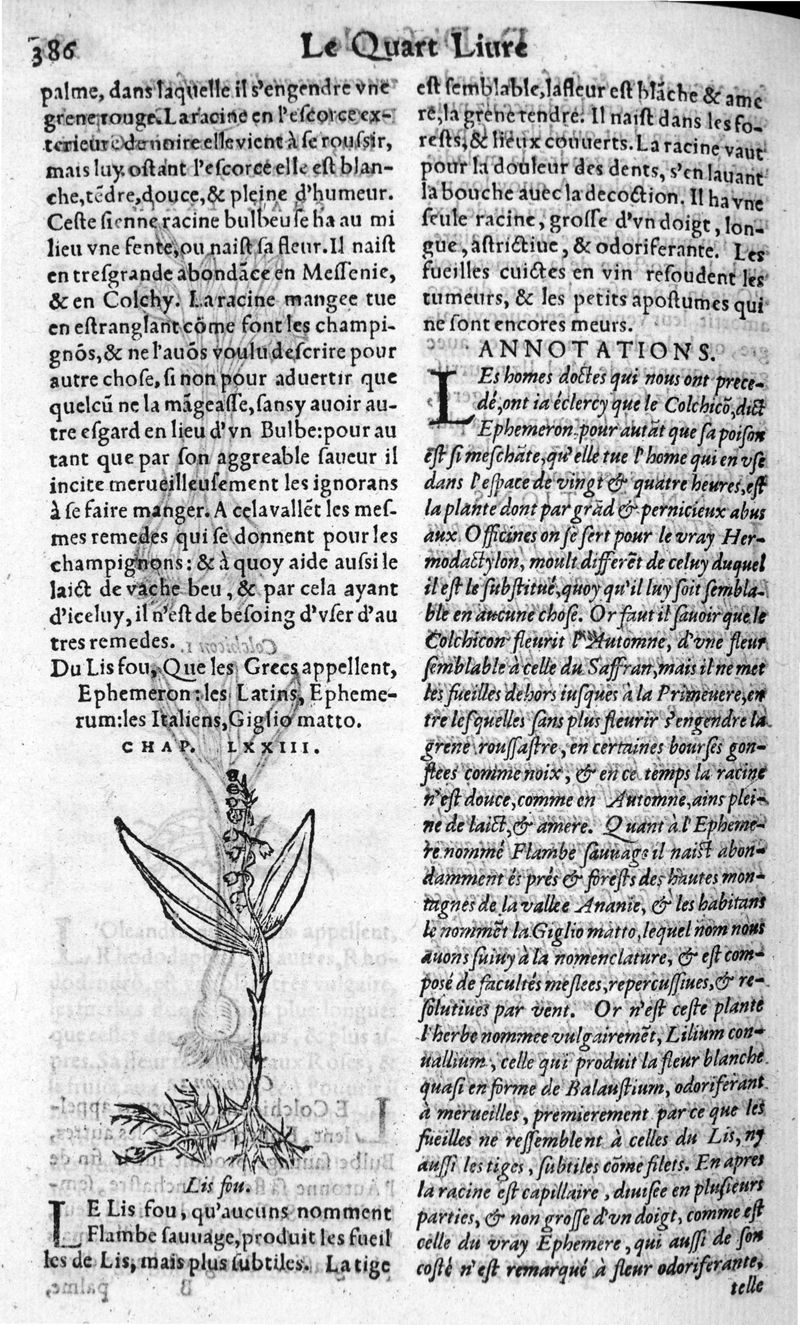 386
Le Quart Liure
palme, dans laq̃uelle il s'engendre vne
grene rouge. La racine en l'escorce ex-
terieure de noire elle vient à se roussir,
mais luy ostant l'escorce elle est blan-
che, tẽdre, douce, & pleine d'humeur.
Ceste sienne racine bulbeuse ha au mi
lieu vne fente, ou naist sa fleur. Il naist
en tresgrande abondãce en Messenie,
& en Colchy. La racine mangee tue
en estranglant cõme font les champi-
gnõs, & ne l'auõs voulu descrire pour
autre chose, si non pour aduertir que
quelcũ ne la mãgeasse, sans y auoir au-
tre esgard en lieu d'vn Bulbe: pour au
tant que par son aggreable saueur il
incite merueilleusement les ignorans
à se faire manger. A cela vallẽt les mes-
mes remedes qui se donnent pour les
champignons: & à quoy aide aussi le
laict de vache beu, & par cela ayant
d'iceluy, il n'est de besoing d'vser d'au
tres remedes.
Du Lis fou, Que les Grecs appellent,
Ephemeron: les Latins, Epheme-
rum: les Italiens, Giglio matto.
CHAP. LXXIII.
Lis fou.
LE Lis fou, qu'aucuns nomment
Flambe sauuage, produit les fueil
les de Lis, mais plus subtiles. La tige
est semblable, la fleur est blãche & ame
re, la grene tendre. Il naist dans les fo-
rests, & lieux couuerts. La racine vaut
pour la douleur des dents, s'en lauant
la bouche auec la decoction. Il ha vne
seule racine, grosse d'vn doigt, lon-
gue, astrictiue, & odoriferante. Les
fueilles cuictes en vin resoudent les
tumeurs, & les petits apostumes qui
ne sont encores meurs.
ANNOTATIONS.
LEs homes doctes qui nous ont prece-
dé, ont ia éclercy que le Colchicõ, dict
Ephemeron: pour autãt que sa poison
est si meschãte, qu'elle tue l'home qui en vse
dans l'espace de vingt & quatre heures, est
la plante dont par grãd & pernicieux abus
aux Officines on se sert pour le vray Her-
modactylon, moult differẽt de celuy duquel
il est le substitué, quoy qu'il luy soit sembla-
ble en aucune chose. Or faut il sauoir que le
Colchicon fleurit l'Automne, d'vne fleur
semblable à celle du Saffran, mais il ne met
les fueilles dehors iusques à la Primeuere, en
tre lesquelles sans plus fleurir s'engendre la
grene roussastre, en certaines bourses gon-
flees comme noix, & en ce temps la racine
n'est douce, comme en Automne, ains plei-
ne de laict, & amere. Quant à l'Epheme-
re nommé Flambe sauuage il naist abon-
damment és prés & forests des hautes mon-
tagnes de la vallee Ananie, & les habitans
le nommẽt la Giglio matto, lequel nom nous
auons suiuy à la nomenclature, & est com-
posé de facultés meslees, repercussiues, & re-
solutiues par vent. Or n'est ceste plante
l'herbe nommee vulgairemẽt, Lilium con-
uallium, celle qui produit la fleur blanche
quasi en forme de Balaustium, odoriferant
à merueilles, premierement par ce que les
fueilles ne ressemblent à celles du Lis, ny
aussi les tiges, subtiles cõme filets. En apres
la racine est capillaire, diuisee en plusieurs
parties, & non grosse d'vn doigt, comme est
celle du vray Ephemere, qui aussi de son
costé n'est remarqué à fleur odoriferante,
telle